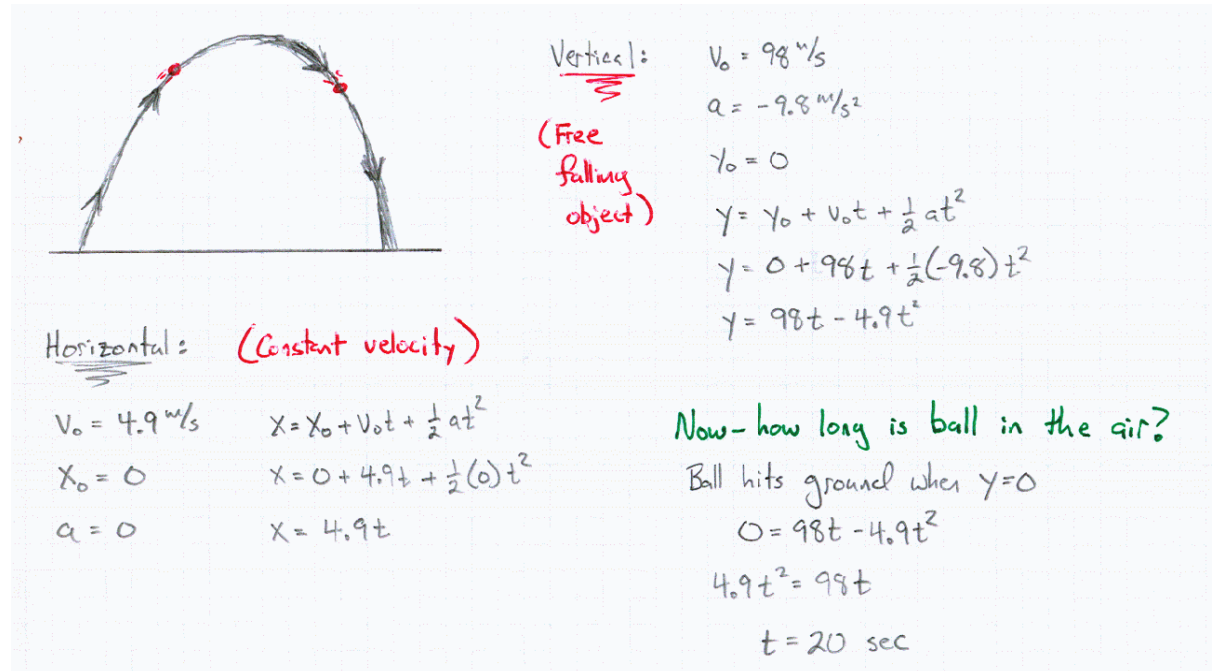 Vertical:
(Free
falling
object)
V₀ = 98 m/s
a = -9.8 m/s²
y₀ = 0
y = y₀ + v₀t + ½ at²
y = 0 + 98t + ½(-9.8)t²
y = 98t - 4.9t²
Horizontal: (Constant velocity)
V₀ = 4.9 m/s
X₀ = 0
a = 0
X = X₀ + V₀t + ½ at²
X = 0 + 4.9t + ½(0)t²
X = 4.9t
Now - how long is ball in the air?
Ball hits ground when y=0
0 = 98t - 4.9t²
4.9t² = 98t
t = 20 sec